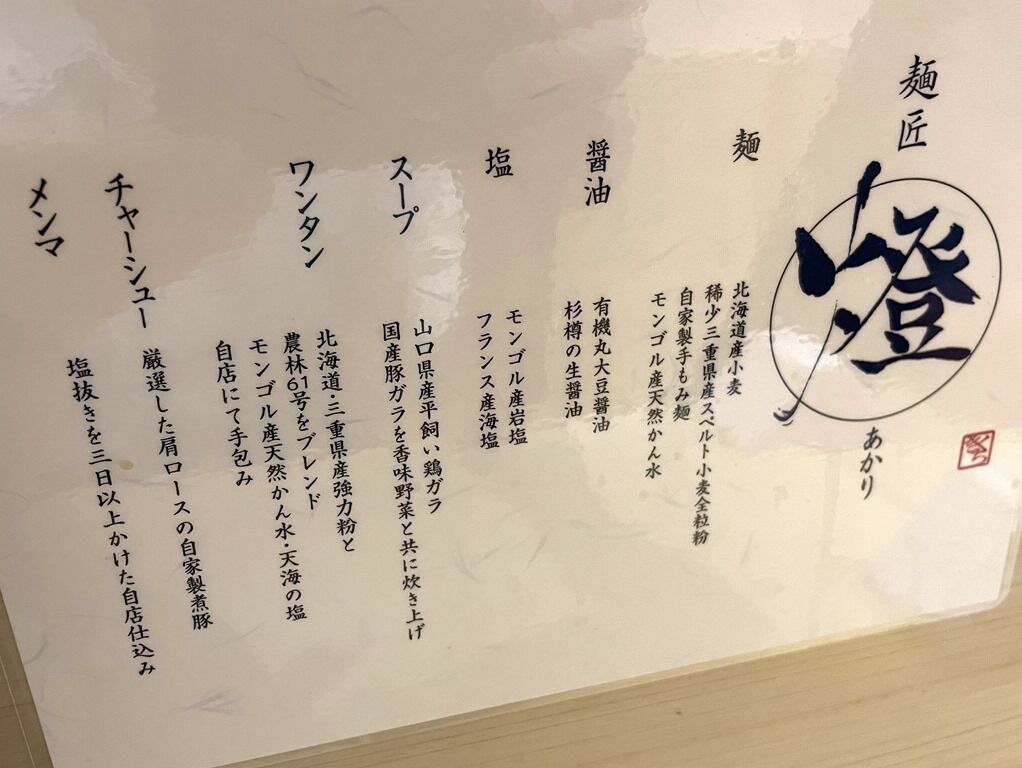 麺匠
燈
あかり
麺
北海道産小麦
稀少三重県産スペルト小麦全粒粉
自家製手もみ麺
モンゴル産天然かん水
醤油
有機丸大豆醤油
杉樽の生醤油
塩
モンゴル産岩塩
フランス産海塩
スープ
山口県産平飼い鶏ガラ
国産豚ガラを香味野菜と共に炊き上げ
ワンタン
北海道・三重県産強力粉と
農林61号をブレンド
モンゴル産天然かん水・天海の塩
自店にて手包み
チャーシュー
厳選した肩ロースの自家製煮豚
メンマ
塩抜きを三日以上かけた自店仕込み